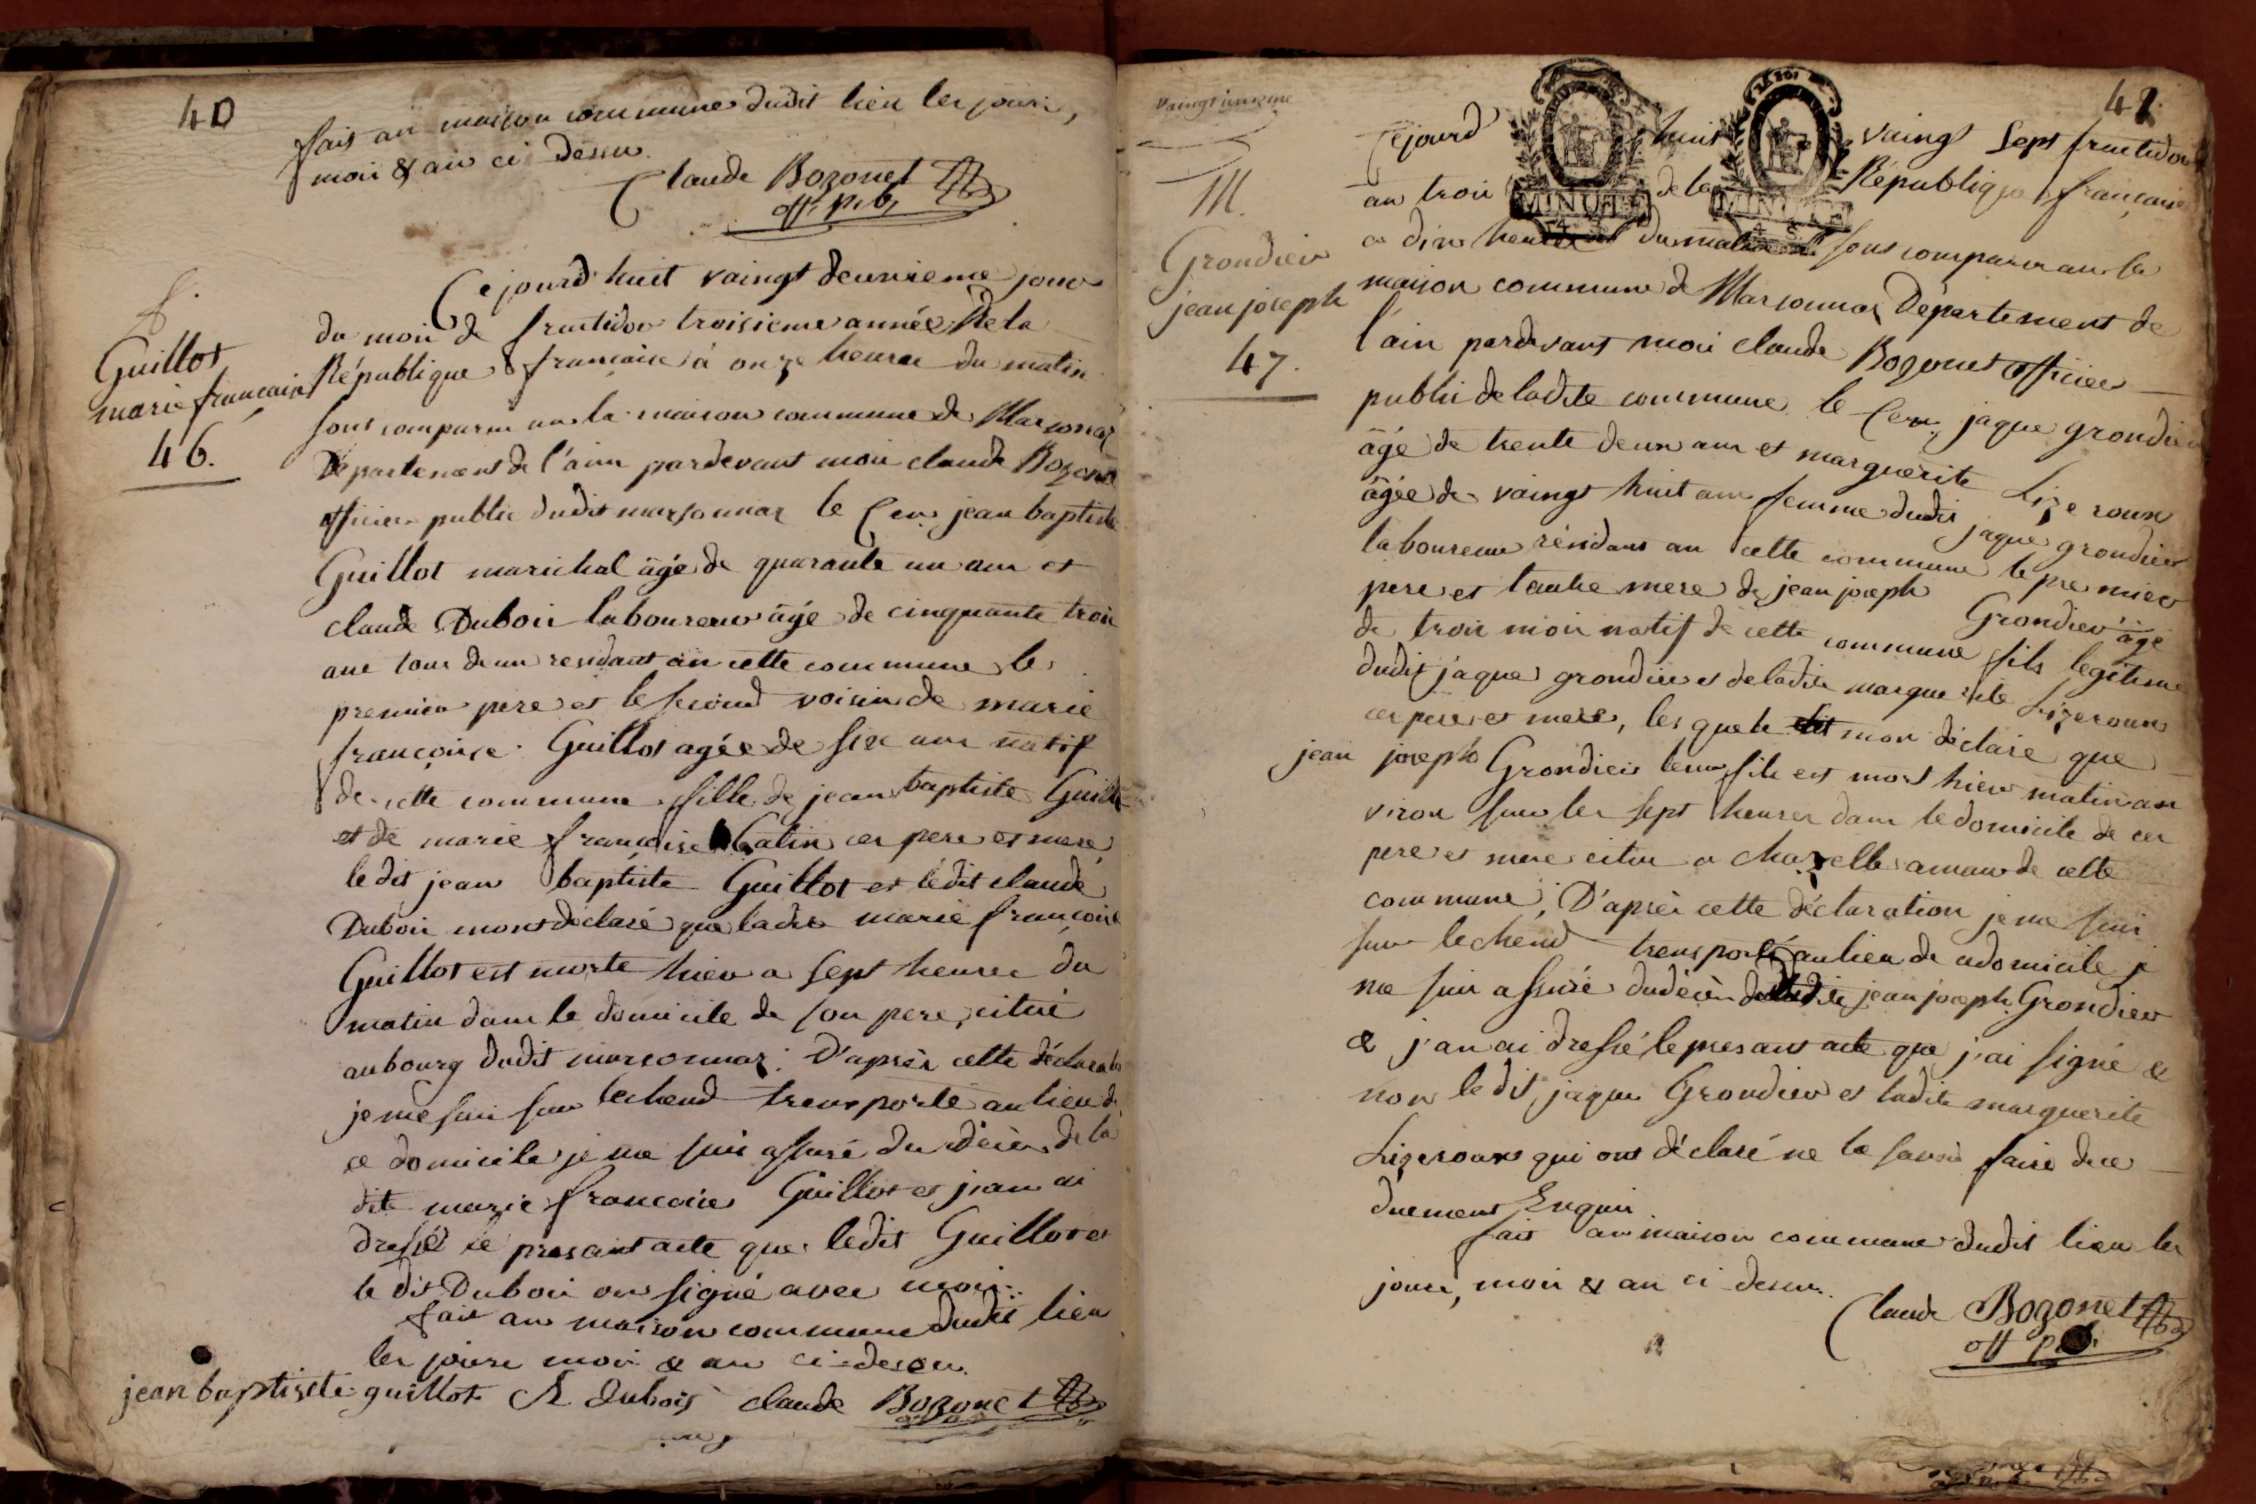 40
fait an maison commune dudit lieu les jours,
mois & an ci dessu
Claude Bozonet
off. pub.
f.
Guillot
marie françoise
46.
Cejourd'huit vaingt deuxieme jour
du moi de fructidor troisieme année de la
République française à onze heures du matin
sont comparu an la maison commune de Marsonaz
Departement de l'ain pardevant moi claude Bozonet
officier public dudit marsonnaz le Cen. jean baptiste
Guillot marichal âgé de quarante un an et
claude Duboi laboureur âgé de cinquante troi
ans tous deux residant an cette commune le
premier pere et le second voisin de marie
françoise Guillot agée de six an natif
de cette commune fille de jean baptiste Guillot
et de marie françoise Catin ces pere et mere
le dit jean baptiste Guillot et ledit claude
Duboi mont déclaré que ladite marie françoise
Guillot est morte hier a sept heures du
matin dans le domicile de son pere, citué
au bourg dudit marsonnaz. D'après cette déclaration
je me sui sur lechend transporté au lieu de
ce domicile je me sui assuré du décès de la
dite marie françoise Guillot et j'an ai
dressé le presant acte que ledit Guillot et
le dit Duboi on signé avec moi.
fait an maison commune dudit lieu
les jours moi & an ci desu.
jean baptiste guillot Cl dubois claude Bozonet
vaingt unieme
M.
Grondier
jean joseph
47.
41.
Cejourd'huit vaingt sept fructidor
MINUTE
MINUTE
an troi de la République française
a dix heures du matin sont comparu an la
maison commune de Marsonnaz Département de
l'ain pardevant moi claude Bozonet officier
public de ladite commune le Cen. jaque grondier
âgé de trente deux an et marguerite Lizeroux
âgée de vaingt huit an femme dudit jaque grondier
laboureur résidant an cette commune le premier
pere et l'autre mere de jean joseph Grondier âgé
de troi moi natif de cette commune fils légitime
dudit jaque grondier et de ladite marguerite Lizeroux
ces pere et mere, les quels mon déclaré que
jean joseph Grondier leur fils est mort hier matin an
viron sur les sept heures dans le domicile de ces
pere et mere citué a chazelle amau de cette
commune, D'après cette déclaration je me sui
sur lechend transporté au lieu de cdomicile je
me sui assuré dudécès dudit jean joseph Grondier
& j'an ai dressé le presant acte que j'ai signé &
non le dit jaque Grondier et ladite marguerite
Lizeroux qui ont déclaré ne le savoir faire de ce
duement Enqui
fait an maison commune dudit lieu les
jours, moi & an ci desu.
Claude Bozonet
off pub.